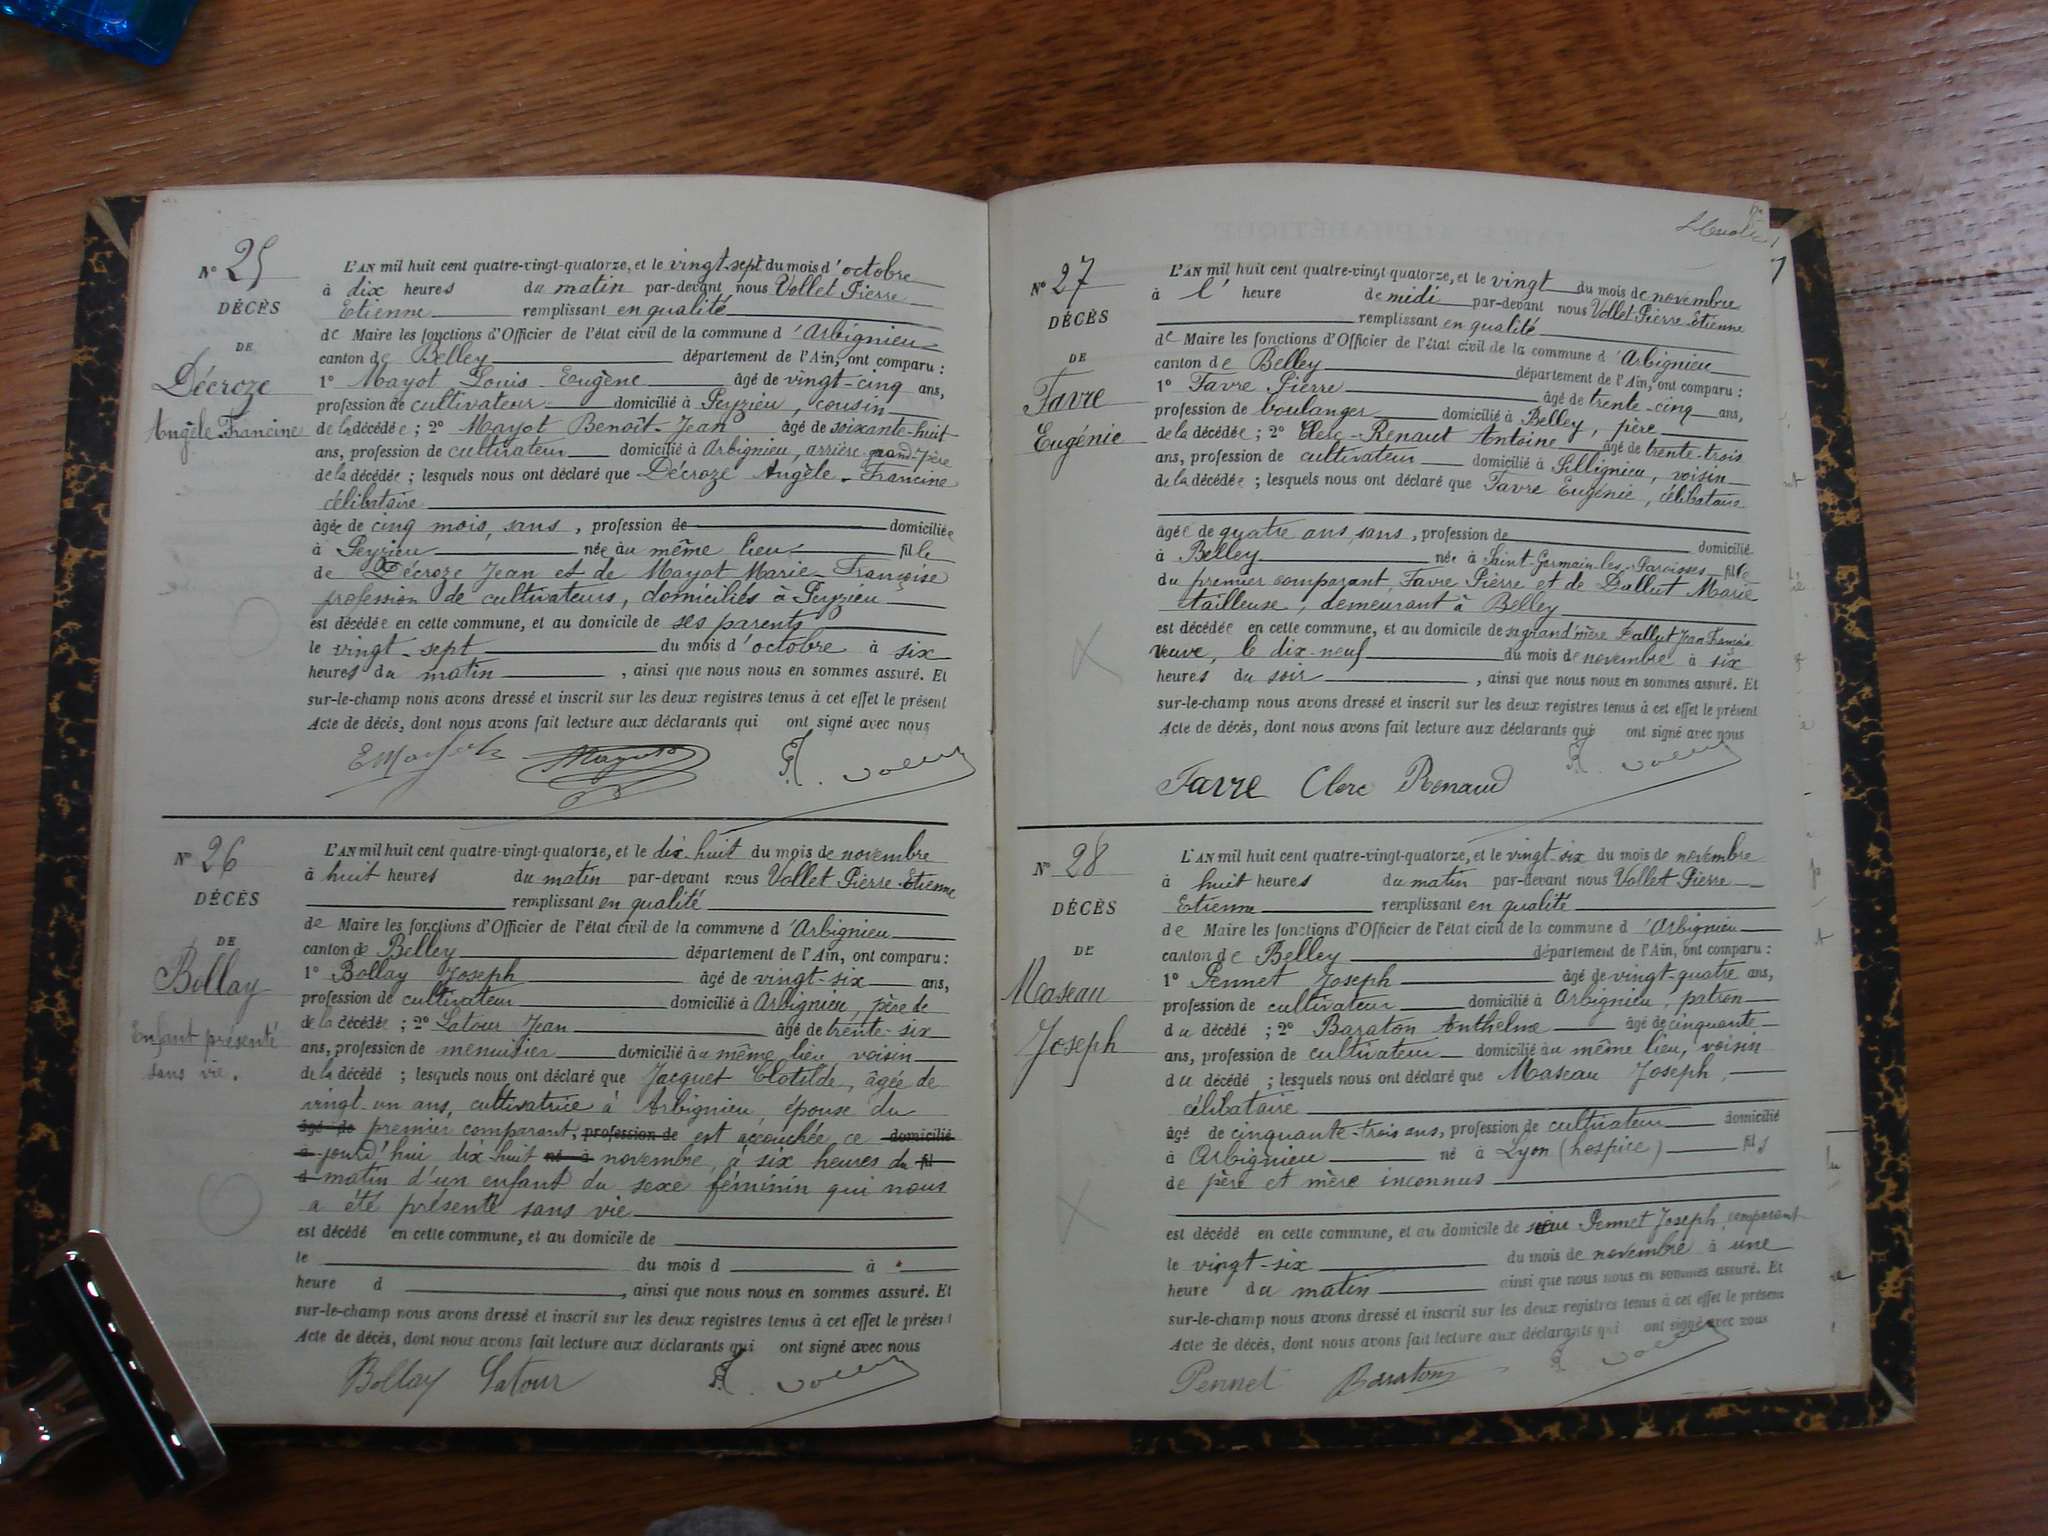 N° 25
DÉCÈS
DE
Décroze
Angèle Francine
L'AN mil huit cent quatre-vingt-quatorze, et le vingt-sept du mois d'octobre
à dix heures du matin par-devant nous Vollet Pierre
Etienne remplissant en qualité
de Maire les fonctions d'Officier de l'état civil de la commune d'Arbignieu
canton de Belley département de l'Ain, ont comparu :
1° Mayot Louis Eugène âgé de vingt-cinq ans,
profession de cultivateur domicilié à Peyzieu, cousin
de la décédée ; 2° Mayot Benoît-Jean âgé de soixante-huit
ans, profession de cultivateur domicilié à Arbignieu, arrière grand-père
de la décédée ; lesquels nous ont déclaré que Décroze Angèle-Francine
célibataire
âgée de cinq mois, sans, profession de domiciliée
à Peyzieu née au même lieu fille
de Décroze Jean et de Mayot Marie-Françoise
profession de cultivateurs, domiciliés à Peyzieu
est décédée en cette commune, et au domicile de ses parents
le vingt-sept du mois d'octobre à six
heures du matin, ainsi que nous nous en sommes assuré. Et
sur-le-champ nous avons dressé et inscrit sur les deux registres tenus à cet effet le présent
Acte de décès, dont nous avons fait lecture aux déclarants qui ont signé avec nous
Mayot
N° 26
DÉCÈS
DE
Bollay
Enfant présenté
sans vie.
L'AN mil huit cent quatre-vingt-quatorze, et le dix-huit du mois de novembre
à huit heures du matin par-devant nous Vollet Pierre-Etienne
remplissant en qualité
de Maire les fonctions d'Officier de l'état civil de la commune d'Arbignieu
canton de Belley département de l'Ain, ont comparu :
1° Bollay Joseph âgé de vingt-six ans,
profession de cultivateur domicilié à Arbignieu, père de
de la décédée ; 2° Latour Jean âgé de trente-six
ans, profession de menuisier domicilié au même lieu, voisin
de la décédé ; lesquels nous ont déclaré que Jacquet Clotilde, âgée de
vingt un ans, cultivatrice à Arbignieu, épouse du
âgé de premier comparant, profession de est accouchée ce domicilié
à jourd'hui dix-huit né à novembre, à six heures du fil
d matin d'un enfant du sexe féminin qui nous
a été présenté sans vie
est décédé en cette commune, et au domicile de
le du mois d à
heure d, ainsi que nous nous en sommes assuré. Et
sur-le-champ nous avons dressé et inscrit sur les deux registres tenus à cet effet le présent
Acte de décès, dont nous avons fait lecture aux déclarants qui ont signé avec nous
Bollay Latour
N° 27
DÉCÈS
DE
Favre
Eugénie
L'AN mil huit cent quatre-vingt-quatorze, et le vingt du mois de novembre
à l' heure de midi par-devant nous Vollet Pierre-Etienne
remplissant en qualité
de Maire les fonctions d'Officier de l'état civil de la commune d'Arbignieu
canton de Belley département de l'Ain, ont comparu :
1° Favre Pierre âgé de trente-cinq ans,
profession de boulanger domicilié à Belley, père
de la décédée ; 2° Clerc-Renaut Antoine âgé de trente-trois
ans, profession de cultivateur domicilié à Sillignieu, voisin
de la décédée ; lesquels nous ont déclaré que Favre Eugénie, célibataire
âgée de quatre ans, sans, profession de domicilié
à Belley née à Saint-Germain-les-Paroisses fille
du premier comparant Favre Pierre et de Dallut Marie
tailleuse, demeurant à Belley
est décédée en cette commune, et au domicile de sa grand'mère Dallut Jean François
veuve, le dix-neuf du mois de novembre à six
heures du soir, ainsi que nous nous en sommes assuré. Et
sur-le-champ nous avons dressé et inscrit sur les deux registres tenus à cet effet le présent
Acte de décès, dont nous avons fait lecture aux déclarants qui ont signé avec nous
Favre Clerc Renaud
N° 28
DÉCÈS
DE
Maseau
Joseph
L'AN mil huit cent quatre-vingt-quatorze, et le vingt-six du mois de novembre
à huit heures du matin par-devant nous Vollet Pierre
Etienne remplissant en qualité
de Maire les fonctions d'Officier de l'état civil de la commune d'Arbignieu
canton de Belley département de l'Ain, ont comparu :
1° Pennet Joseph âgé de vingt-quatre ans,
profession de cultivateur domicilié à Arbignieu, patron
du décédé ; 2° Baraton Anthelme âgé de cinquante
ans, profession de cultivateur domicilié au même lieu, voisin
du décédé ; lesquels nous ont déclaré que Maseau Joseph,
célibataire
âgé de cinquante-trois ans, profession de cultivateur domicilié
à Arbignieu né à Lyon (hospice) fils
de père et mère inconnus
est décédé en cette commune, et au domicile de sieur Pennet Joseph, comparant
le vingt-six du mois de novembre à une
heure du matin ainsi que nous nous en sommes assuré. Et
sur-le-champ nous avons dressé et inscrit sur les deux registres tenus à cet effet le présent
Acte de décès, dont nous avons fait lecture aux déclarants qui ont signé avec nous
Pennet Baraton